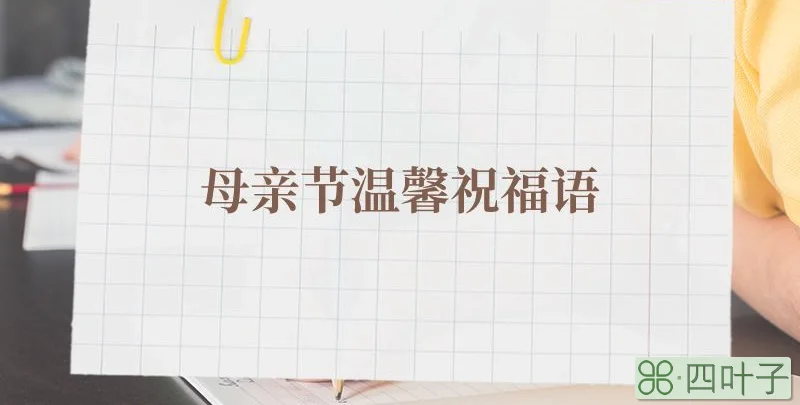 母亲节温馨祝福语
四叶子